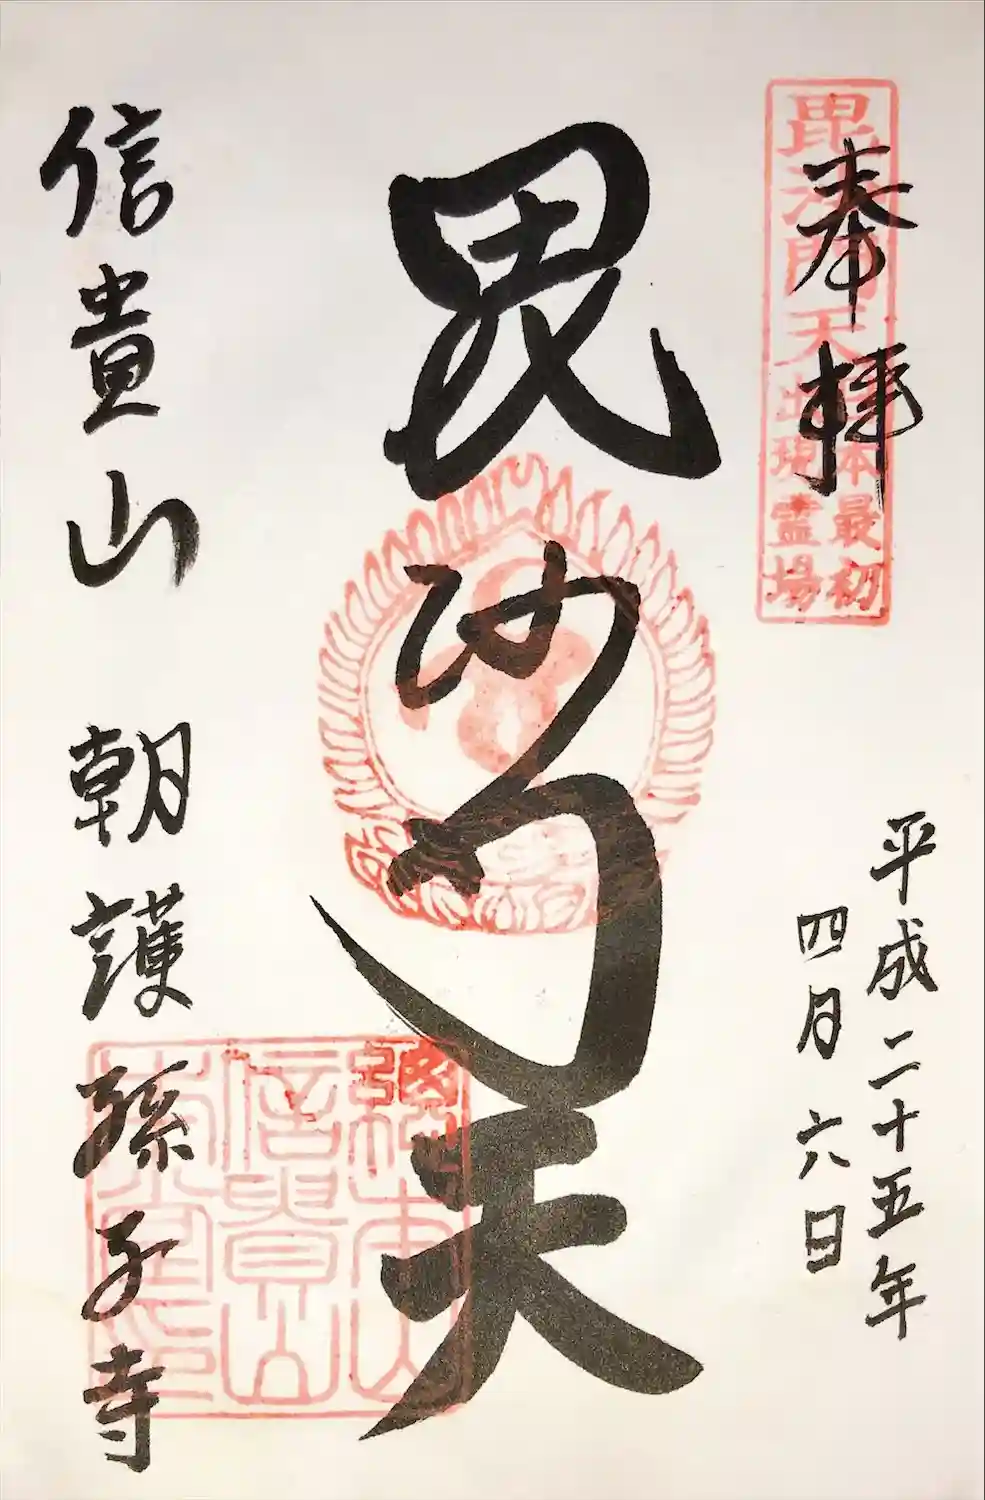 奉拝
毘沙門天
日本最初
出現霊場
平成二十五年
四月六日
毘沙門天
信貴山 朝護孫子寺